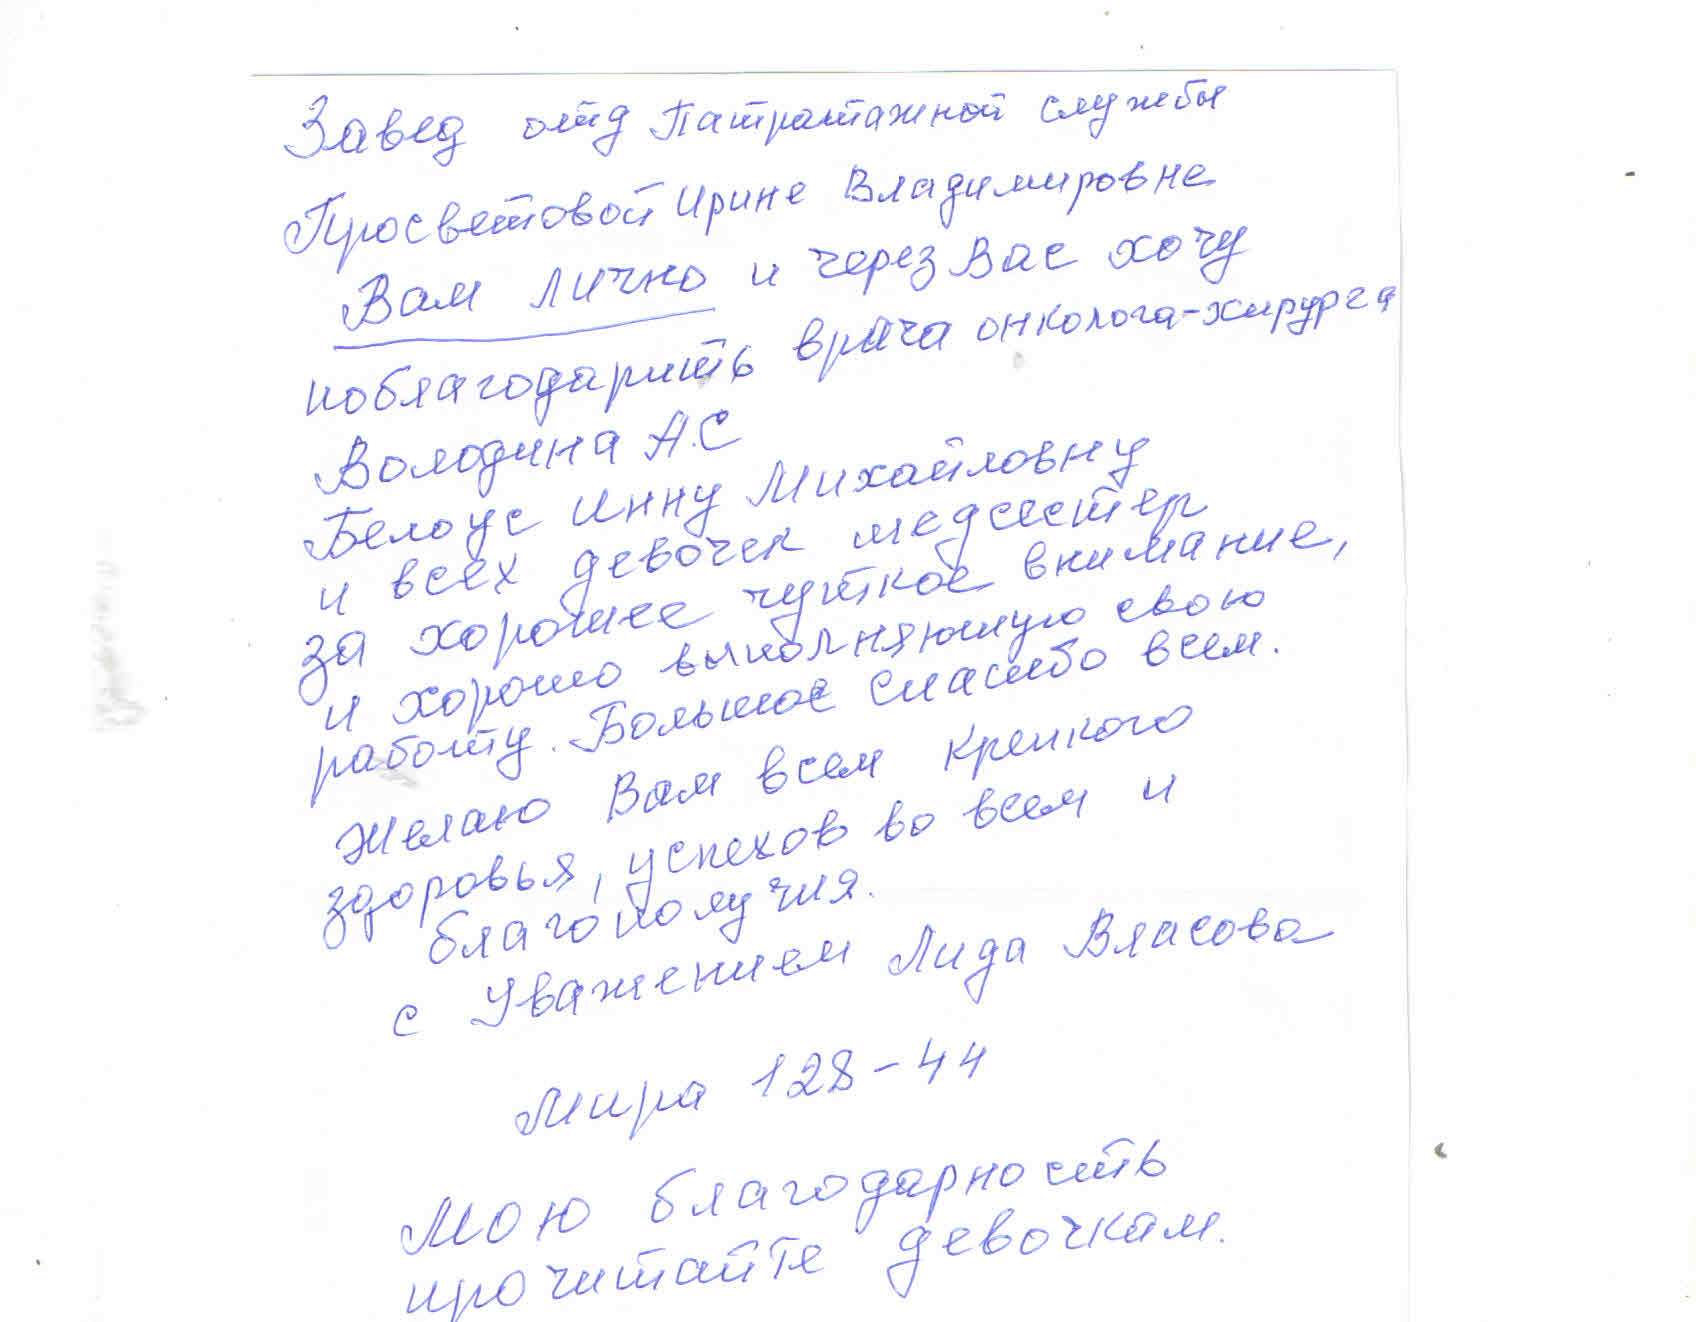 Завед отд Патратажной службы
Просветовой Ирине Владимировне
Вам лично и через Вас хочу
поблагодарить врача онколога-хирурга
Володина А.С
Белоус Инну Михайловну
и всех девочек медсестер
за хорошее чуткое внимание,
и хорошо выполняющую свою
работу. Большое спасибо всем.
Желаю Вам всем крепкого
здоровья, успехов во всем и
благополучия.
с Уважением Лида Власова
Мира 128-44
Мою благодарность
прочитайте девочкам.